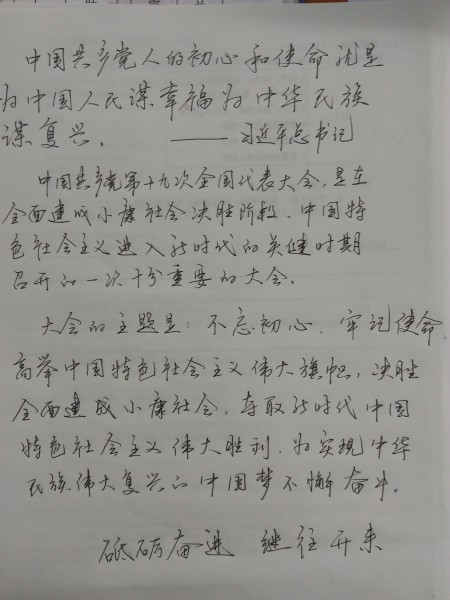 中国共产党人的初心和使命就是
为中国人民谋幸福为中华民族
谋复兴。 ——习近平总书记
中国共产党第十九次全国代表大会,是在
全面建成小康社会决胜阶段、中国特
色社会主义进入新时代的关键时期
召开的一次十分重要的大会。
大会的主题是:不忘初心、牢记使命,
高举中国特色社会主义伟大旗帜,决胜
全面建成小康社会,夺取新时代中国
特色社会主义伟大胜利,为实现中华
民族伟大复兴的中国梦不懈奋斗。
砥砺奋进 继往开来